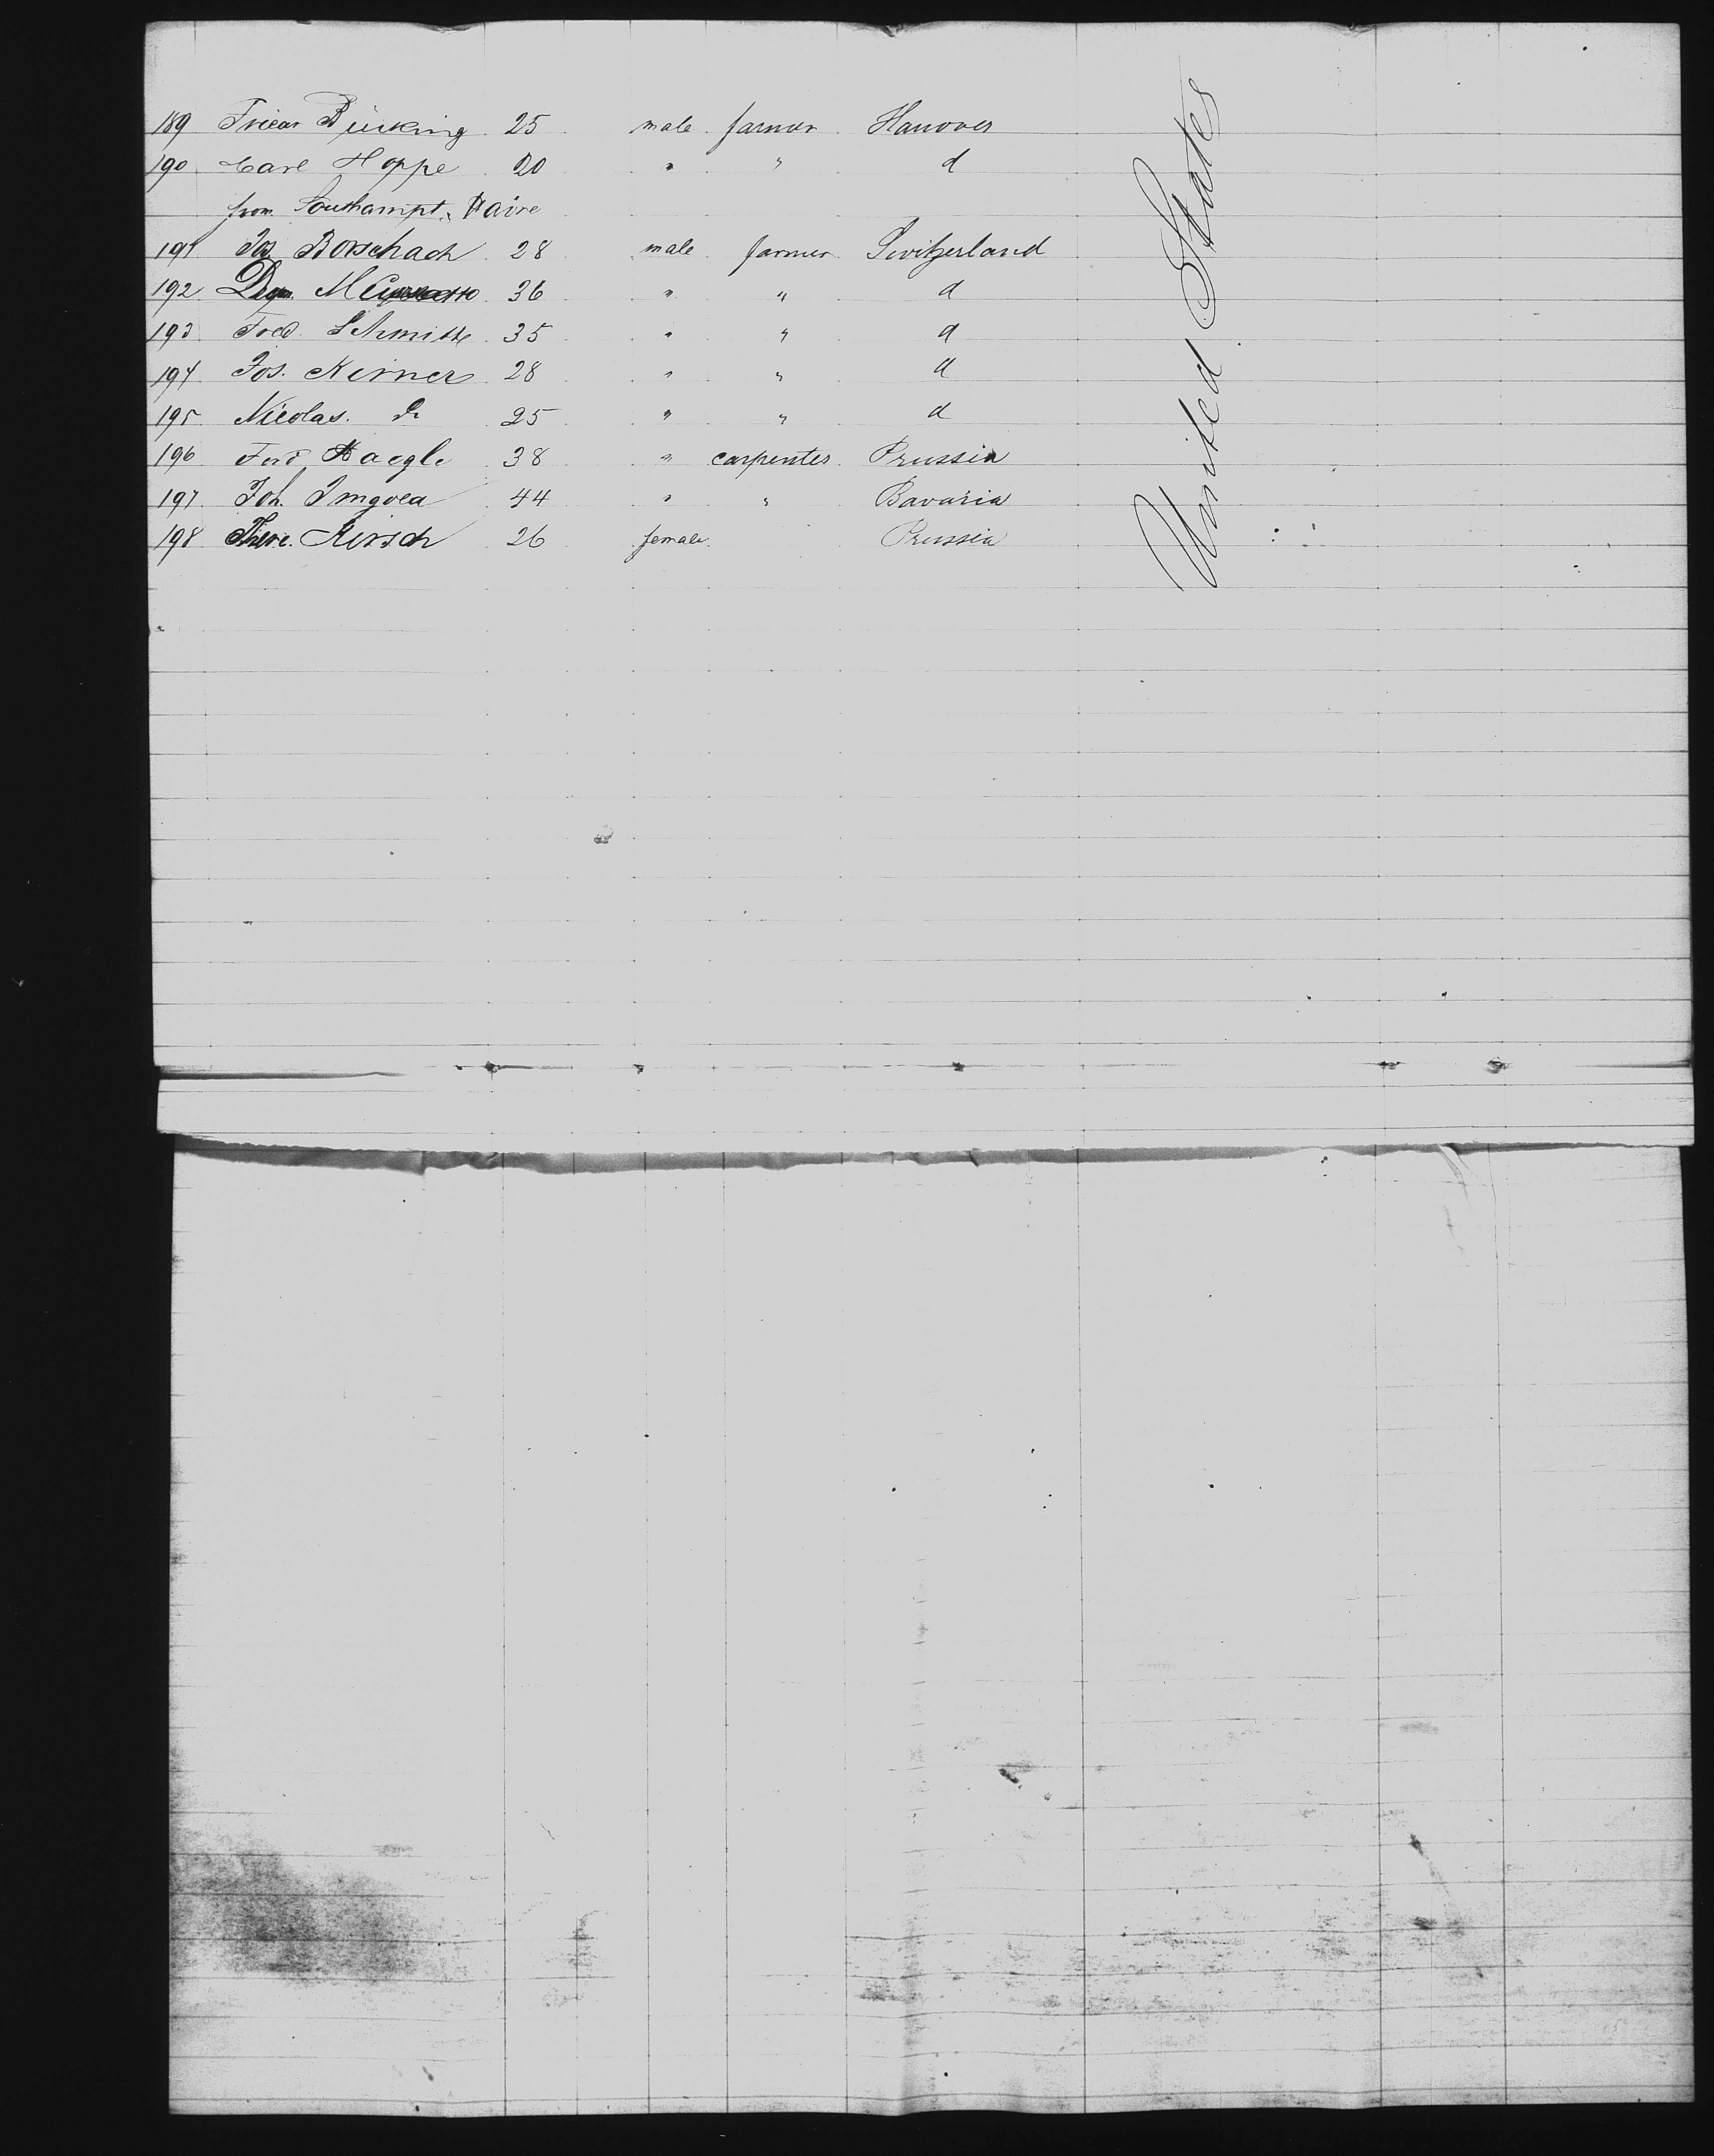 189 Bücking 25 male farmer Hanover
190 Carl Hoppe 20 " " d
from Southampt. & Havre
191 Jos. Borschach 28 male farmer Switzerland
192 36 " " d
193 Fred. Schmitt 35 " " d
194 Jos. Kirner 28 " " d
195 Nicolas. do 25 " " d
196 Ferd Naegle 38 " carpenter Prussia
197 Joh. 44 " " Bavaria
198 There. Kirsch 26 female Prussia
United States